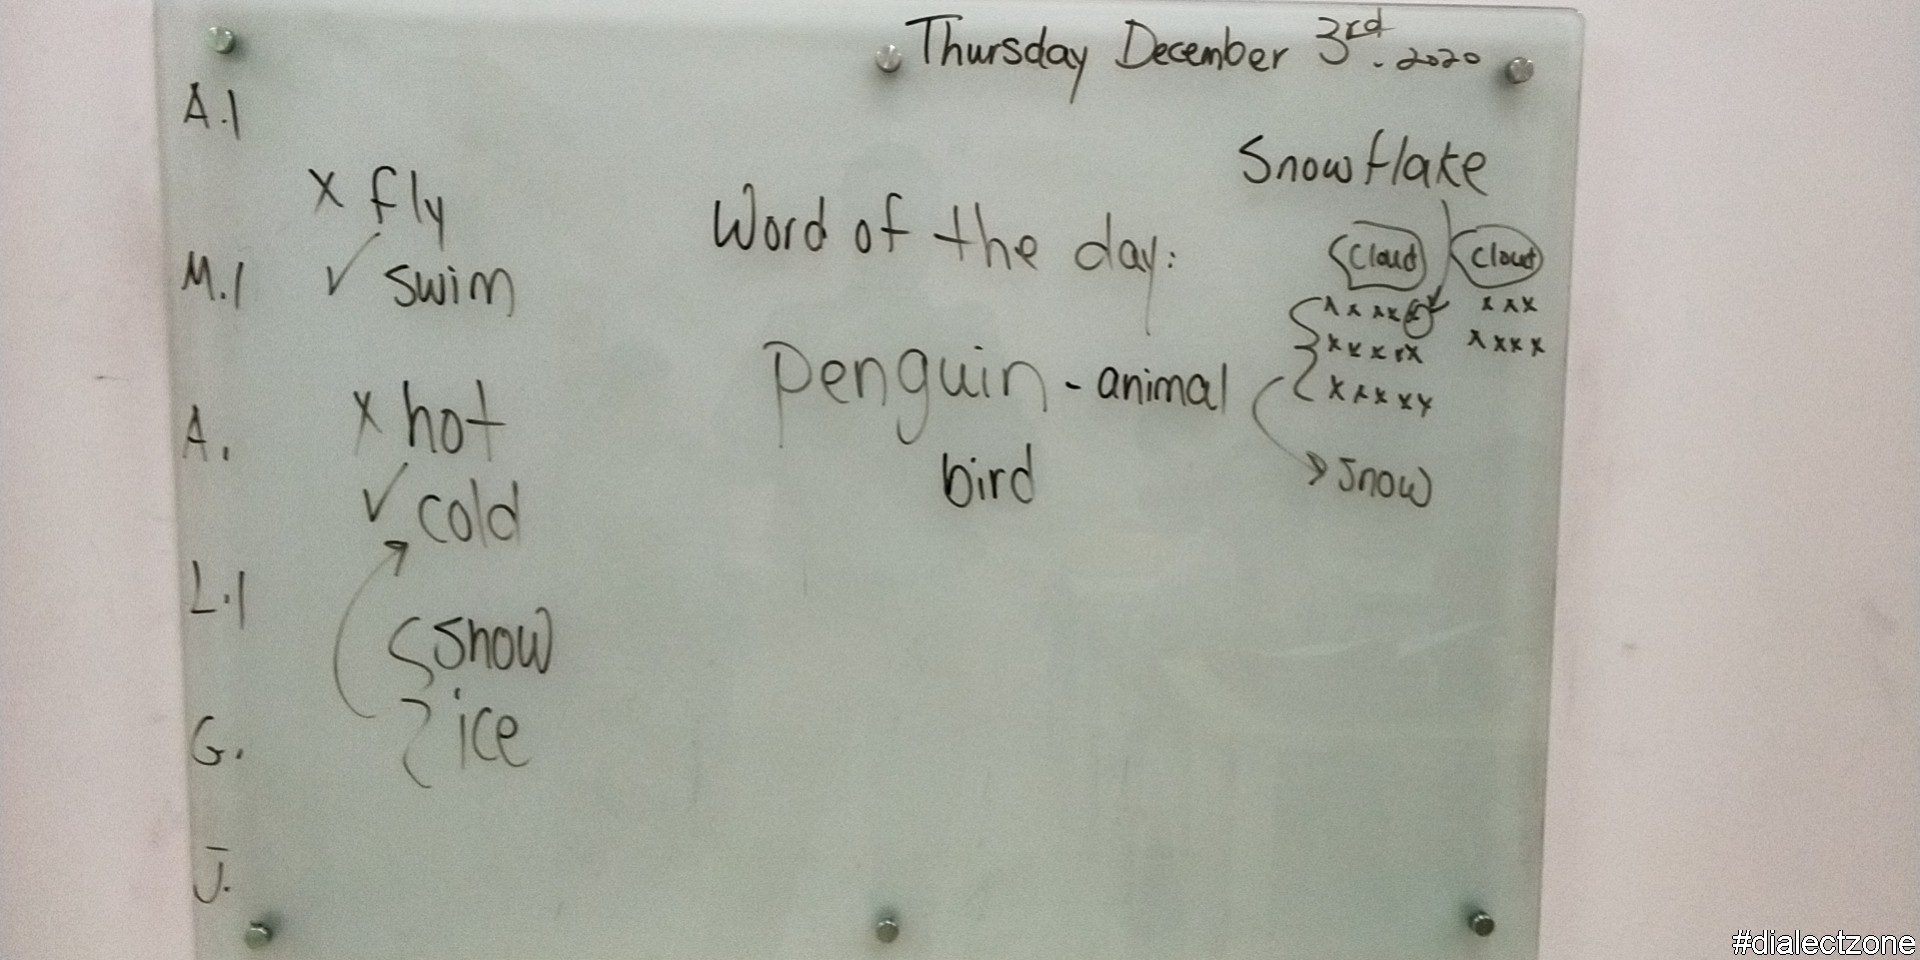 Thursday December 3rd. 2020
A.1
x fly
M.1
✓ swim
A.
x hot
✓ cold
L.1
snow
G.
ice
J.
Word of the day:
penguin - animal
bird
Snowflake
cloud cloud
x x x x x x x x
x x x x x x x x x
x x x x x
snow
#dialectzone